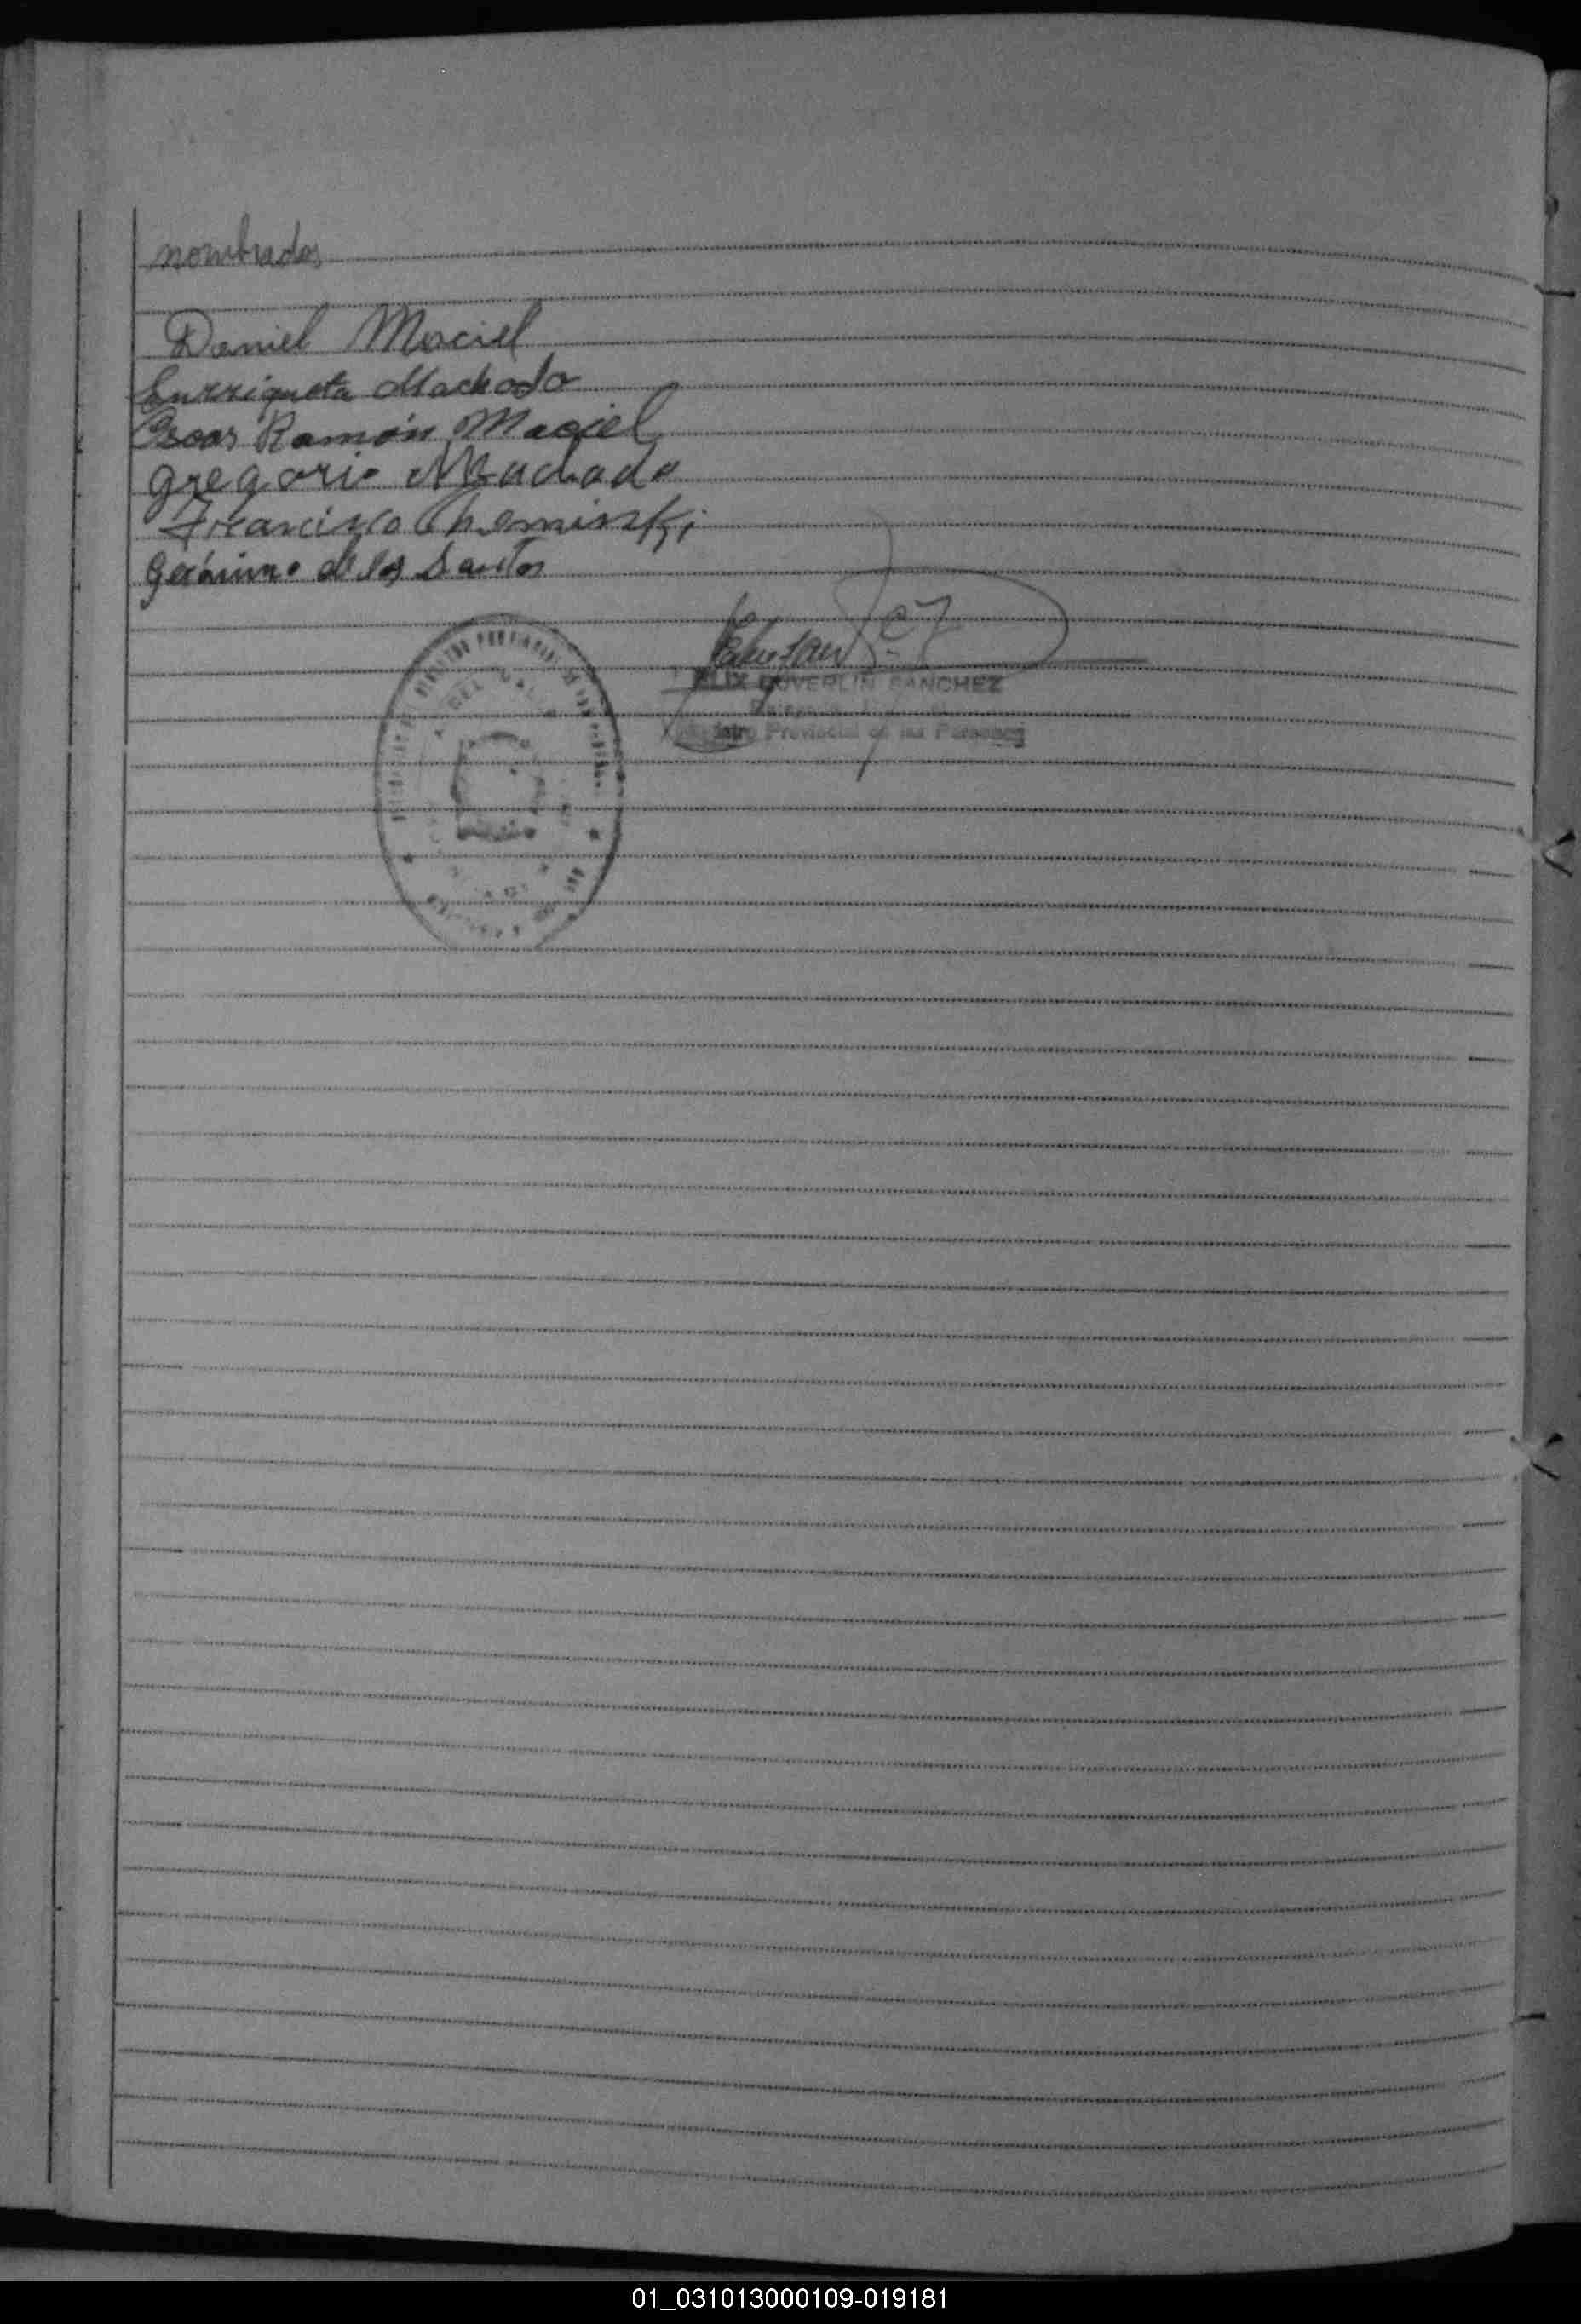 nombrados
Daniel Maciel
Enrriqueta Machado
Oscar Ramón Maciel
Gregorio Machado
Francisco Cheminski
Gerónimo de los Santos
FELIX DUVERLIN SANCHEZ
Registro Provincial de las Personas
01_031013000109-019181